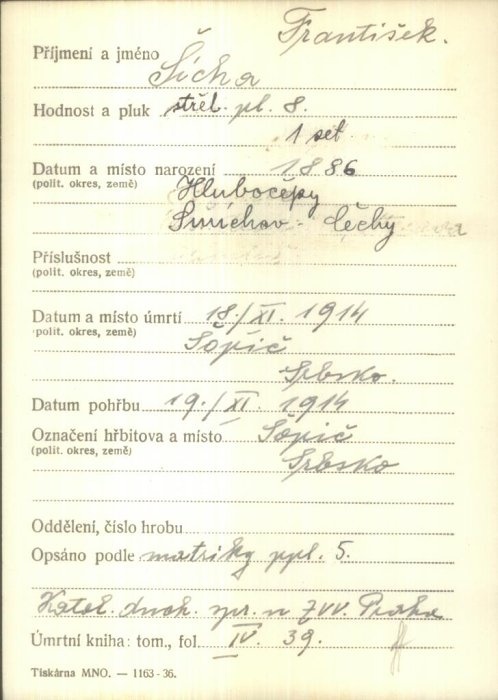 František.
Příjmení a jméno Šícha
Hodnost a pluk střel. pl. 8.
1 set
Datum a místo narození 1886
(polit. okres, země) Hlubočepy
Smíchov - Čechy
Příslušnost
(polit. okres, země)
Datum a místo úmrtí 18./XI. 1914
(polit. okres, země) Šópič
Srbsko.
Datum pohřbu 19./XI. 1914
Označení hřbitova a místo Šópič
(polit. okres, země) Srbsko
Oddělení, číslo hrobu
Opsáno podle matriky ppl. 5.
Katol. duch. spr. u ZVV. Praha
Úmrtní kniha: tom., fol. IV. 39.
Tiskárna MNO. — 1163-36.